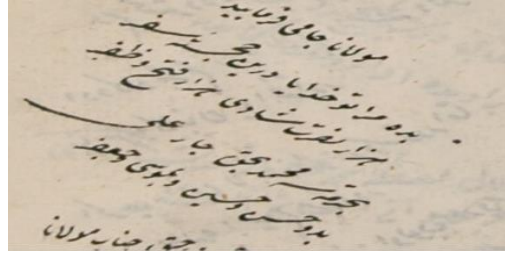 مولانا جامی فرمایید
بده مرا تو خدایا درین خجسته سفر
هزار نصرت شادی هزار فتح و ظفر
بحرمت محمد بحق چار علی
بدو حسن و حسین و بموسی و جعفر
جناب مولانا